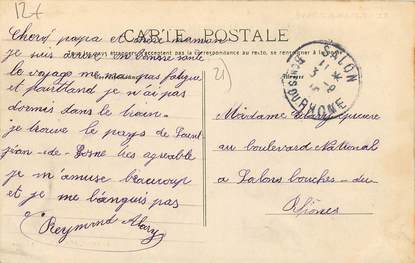 12f
CARTE POSTALE
Tous les pays étrangers n'acceptent pas la Correspondance au recto, se renseigner à la
21
SALON
BCHES DU RHONE
Chers papa et chère maman
je suis arrivé en bonne santé
le voyage me pas fatigué
et pourtland je n'ai pas
dormis dans le train
je trouve le pays de Saint
jean-de- très agréable
je m'amuse beaucoup
et je me languis pas
Reymond Alary
Madame Alary
au boulevard National
a Salons bouches-du
Rhônes